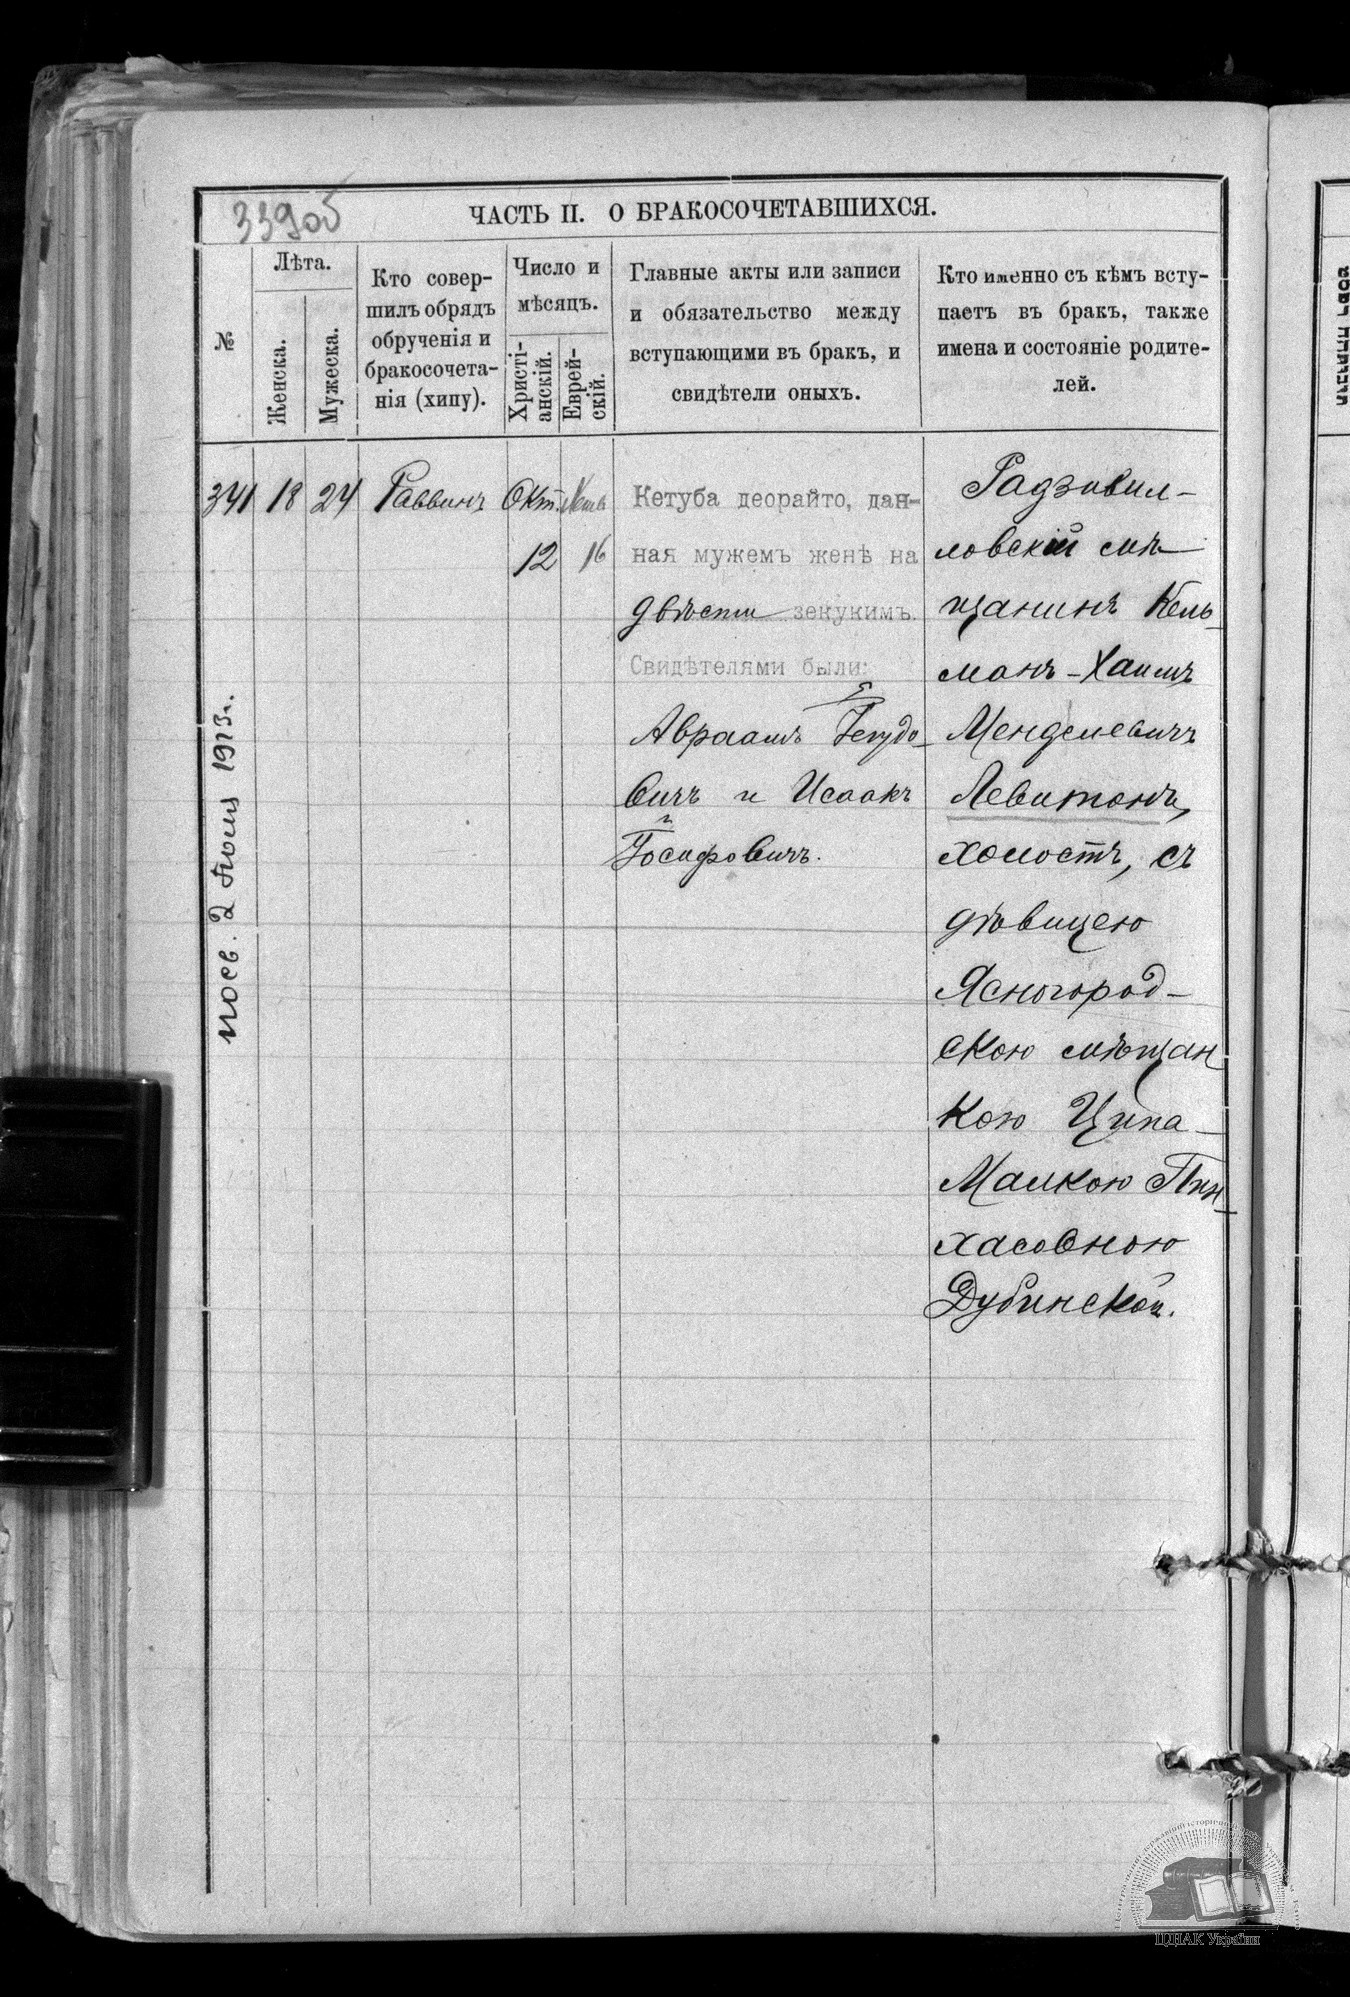 339об
ЧАСТЬ II. О БРАКОСОЧЕТАВШИХСЯ.
№
Лѣта.
Женска.
Мужеска.
Кто совер-
шилъ обрядъ
обрученія и
бракосочета-
нія (хипу).
Число и
мѣсяцъ.
Христі-
анскій.
Еврей-
скій.
Главные акты или записи
и обязательство между
вступающими въ бракъ, и
свидѣтели оныхъ.
Кто именно съ кѣмъ всту-
паетъ въ бракъ, также
имена и состояніе родите-
лей.
341
18
24
Раввинъ
Окт.
12
16
Кетуба деорайто, дан-
ная мужемъ женѣ на
двѣсти зекукимъ.
Свидѣтелями были:
Авраамъ
вичъ и Исаакъ
Іосифовичъ.
Радзивил-
ловскій мѣ-
щанинъ Кель-
манъ-Хаимъ
Менделевичъ
Левитанъ,
холостъ, съ
дѣвицею
Ясногород-
скою мѣщан
кою Ципа-
Малкою Пин-
хасовною
Дубинской.
2 1913г.
ЦДІАК України